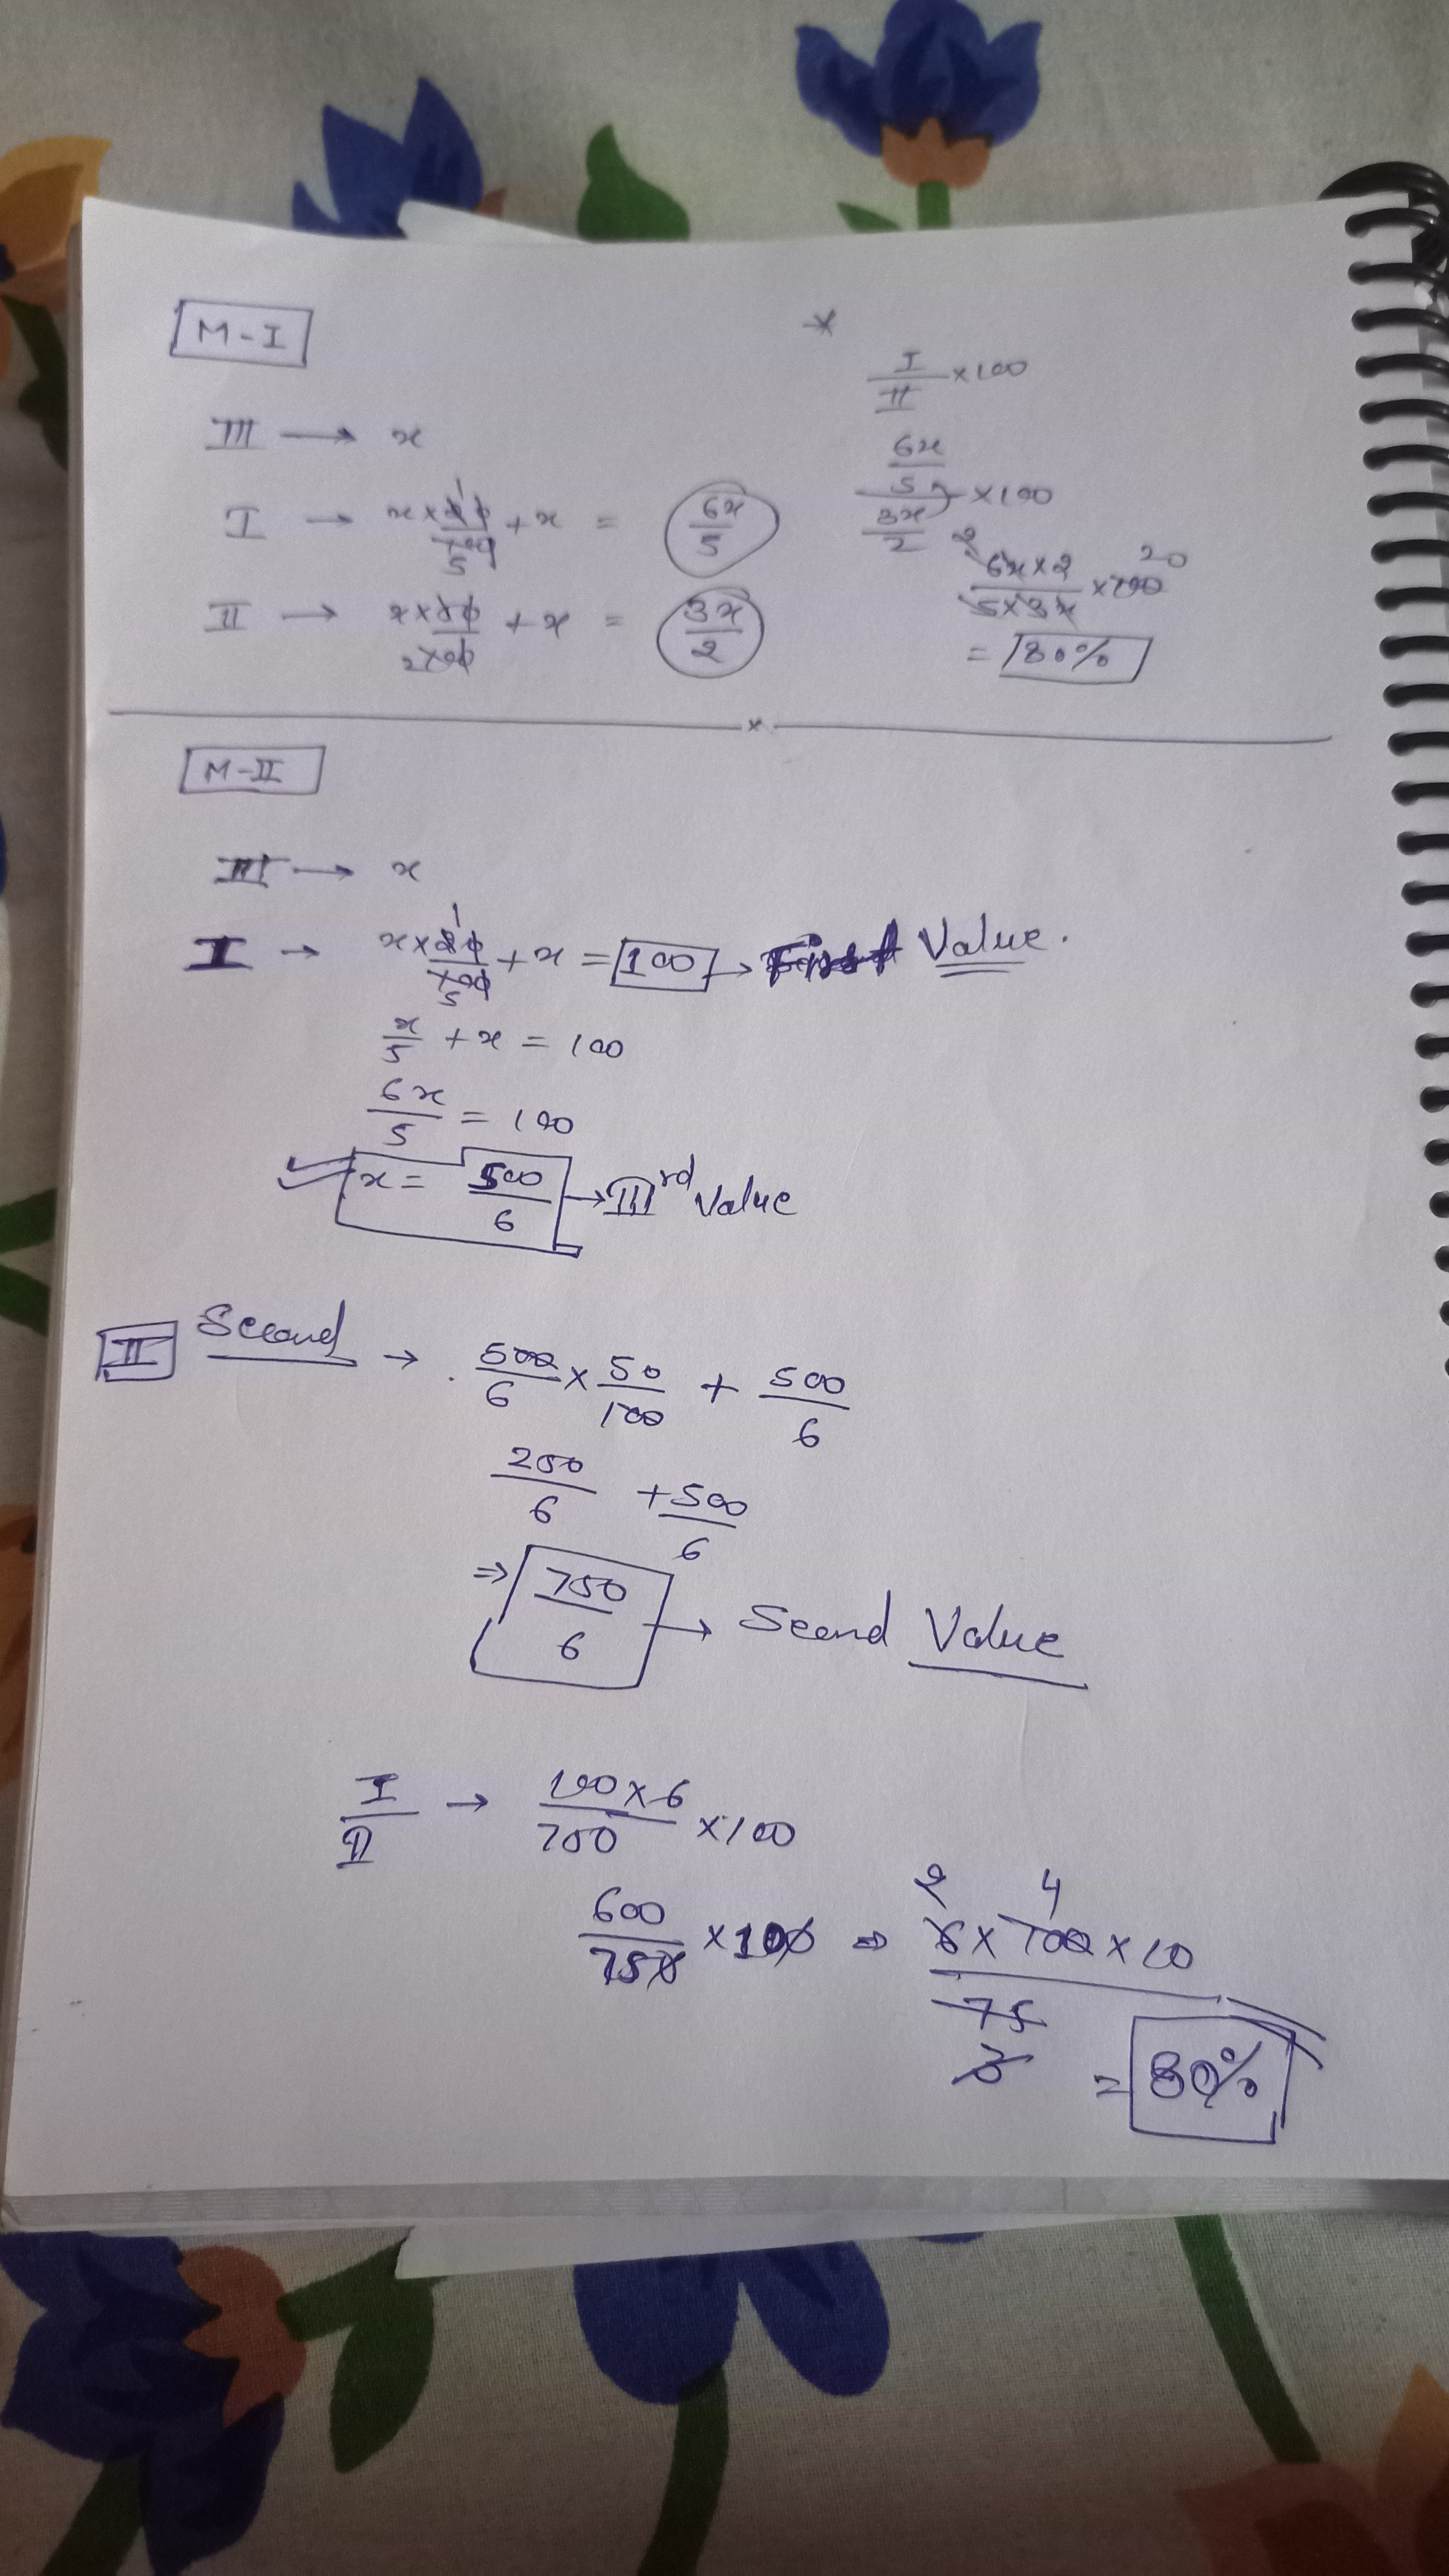 M-I
III → x
I → x×20/100 + x = 6x/5
1
5
II → x×50/100 + x = 3x/2
2
*
I/II ×100
6x/5 / 3x/2 ×100
2 20
6x×2/5×3x ×100
= 80%
x
M-II
III → x
I → x×20/100 + x = 100 → First Value.
1
5
x/5 + x = 100
6x/5 = 100
x = 500/6 → IIIrd Value
II Second → 500/6 × 50/100 + 500/6
250/6 + 500/6
⇒ 750/6 → Second Value
I/II → 100×6/750 ×100
600/750 ×100 ⇒ 6×100×10/75
2 4
3
= 80%